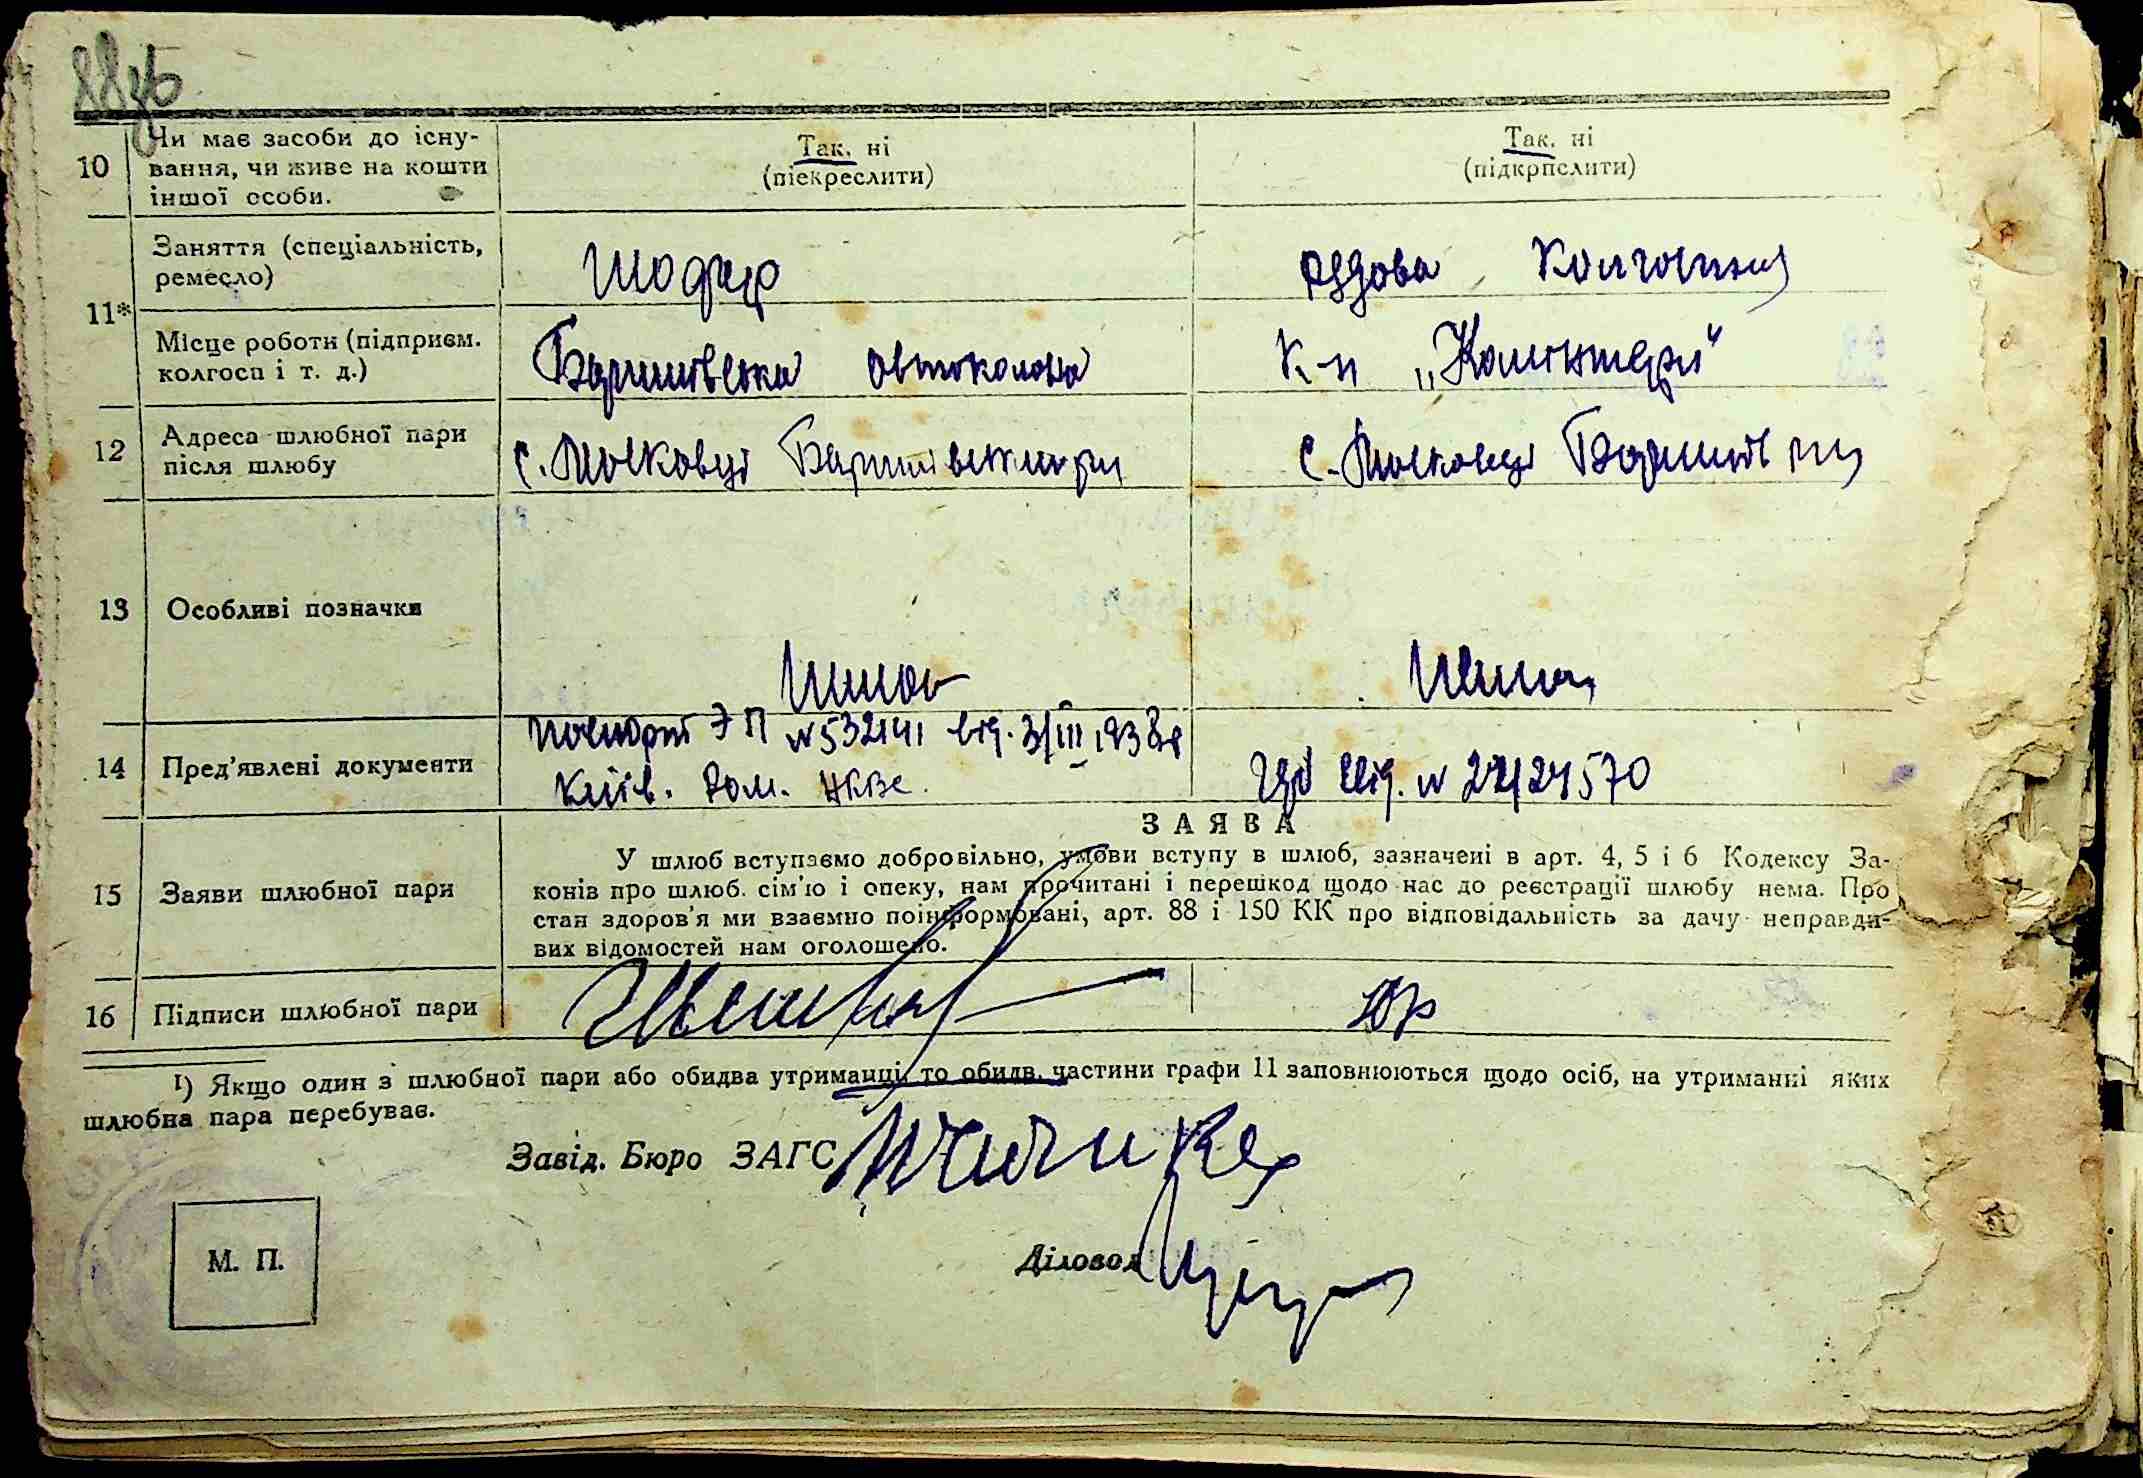 88зв
10
Чи має засоби до існу-
вання, чи живе на кошти
іншої особи.
Так, ні
(піекреслити)
Так, ні
(підкрпслити)
11*
Заняття (спеціальність,
ремесло)
Шофер
рядова колгоспниця
Місце роботи (підприєм.
колгосп і т. д.)
Баришівська автоколона
к-п „Комінтерн"
12
Адреса шлюбної пари
після шлюбу
с. Моськівці Баришівськ р-н
с. Моськівці Баришів р-н
13
Особливі позначки
14
Пред'явлені документи
паспорт ЭП № 532141 від. 3/III 1938 р
Київ. НКВС.
від. № 22/27570
15
Заяви шлюбної пари
ЗАЯВА
У шлюб вступаємо добровільно, умови вступу в шлюб, зазначені в арт. 4, 5 і 6 Кодексу За-
конів про шлюб. сім'ю і опеку, нам прочитані і перешкод щодо нас до реєстрації шлюбу нема. Про
стан здоров'я ми взаємно поінформовані, арт. 88 і 150 КК про відповідальність за дачу неправди-
вих відомостей нам оголошено.
16
Підписи шлюбної пари
1) Якщо один з шлюбної пари або обидва утриманці, то обидв. частини графи 11 заповнюються щодо осіб, на утриманні яких
шлюбна пара перебуває.
Завід. Бюро ЗАГС
М. П.
Діловод